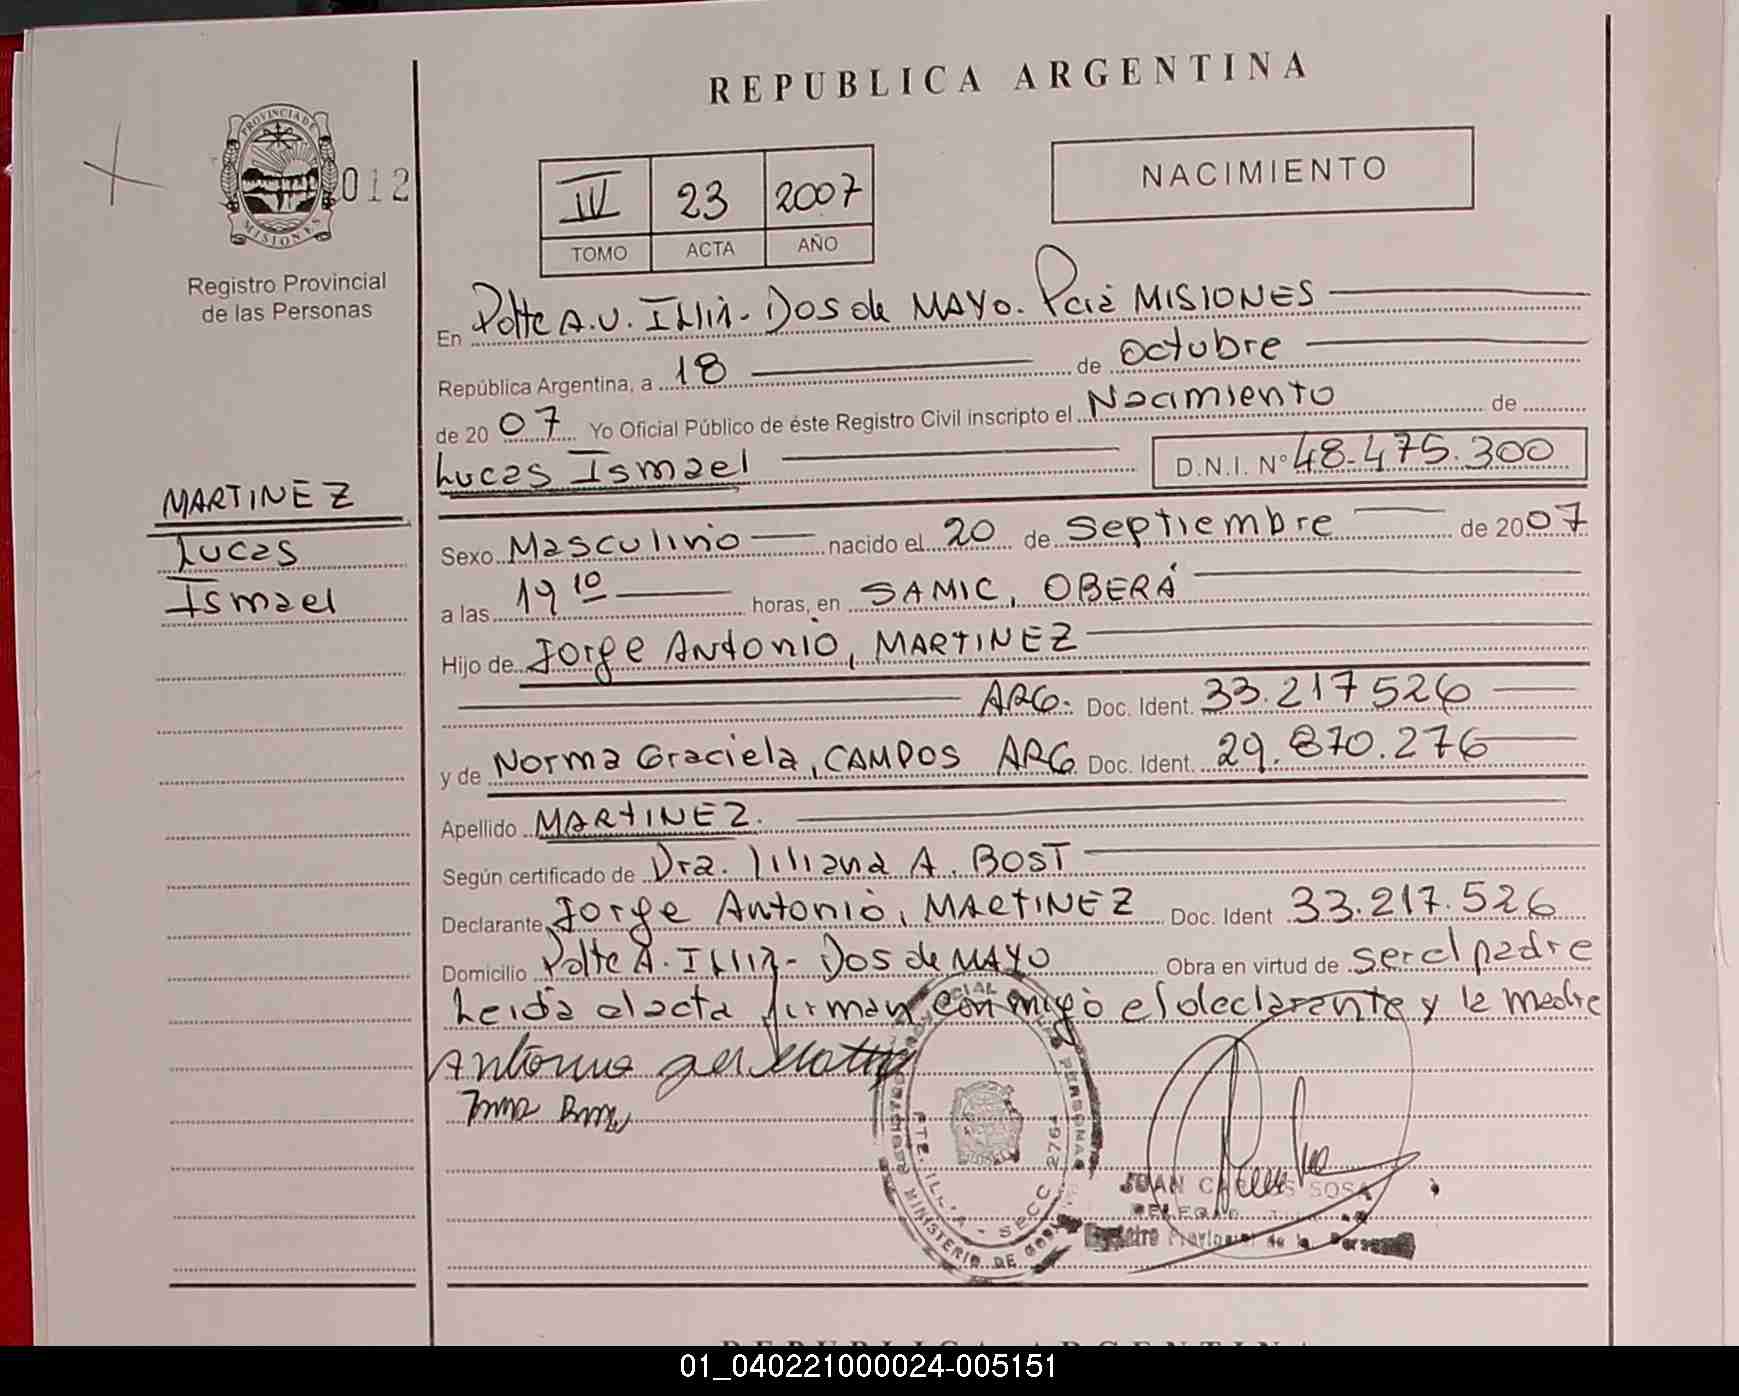 REPUBLICA ARGENTINA
PROVINCIA DE
MISIONES
012
Registro Provincial
de las Personas
IV 23 2007
TOMO ACTA AÑO
NACIMIENTO
En Pdte A.U. Illia - Dos de MAYO. Pcia MISIONES
República Argentina, a 18 de octubre
de 2007 Yo Oficial Público de éste Registro Civil inscripto el Nacimiento de
Lucas Ismael D.N.I. N° 48.475.300
MARTINEZ
Lucas
Ismael
Sexo Masculino nacido el 20 de Septiembre de 2007
a las 19 10 horas, en SAMIC, OBERÁ
Hijo de Jorge Antonio, MARTINEZ
ARG. Doc. Ident. 33.217526
y de Norma Graciela, CAMPOS ARG. Doc. Ident. 29.870.276
Apellido MARTINEZ.
Según certificado de Dra. Liliana A. BOST
Declarante Jorge Antonio, MARTINEZ Doc. Ident 33.217.526
Domicilio Pdte A. Illia - Dos de MAYO Obra en virtud de ser el padre
Leida el acta firman conmigo el declarante y la madre
Antonio
PTE. ILLIA - SECC 2764
MINISTERIO DE
JUAN CARLOS SOSA
Registro Provincial de las Personas
REPUBLICA ARGENTINA
01_040221000024-005151